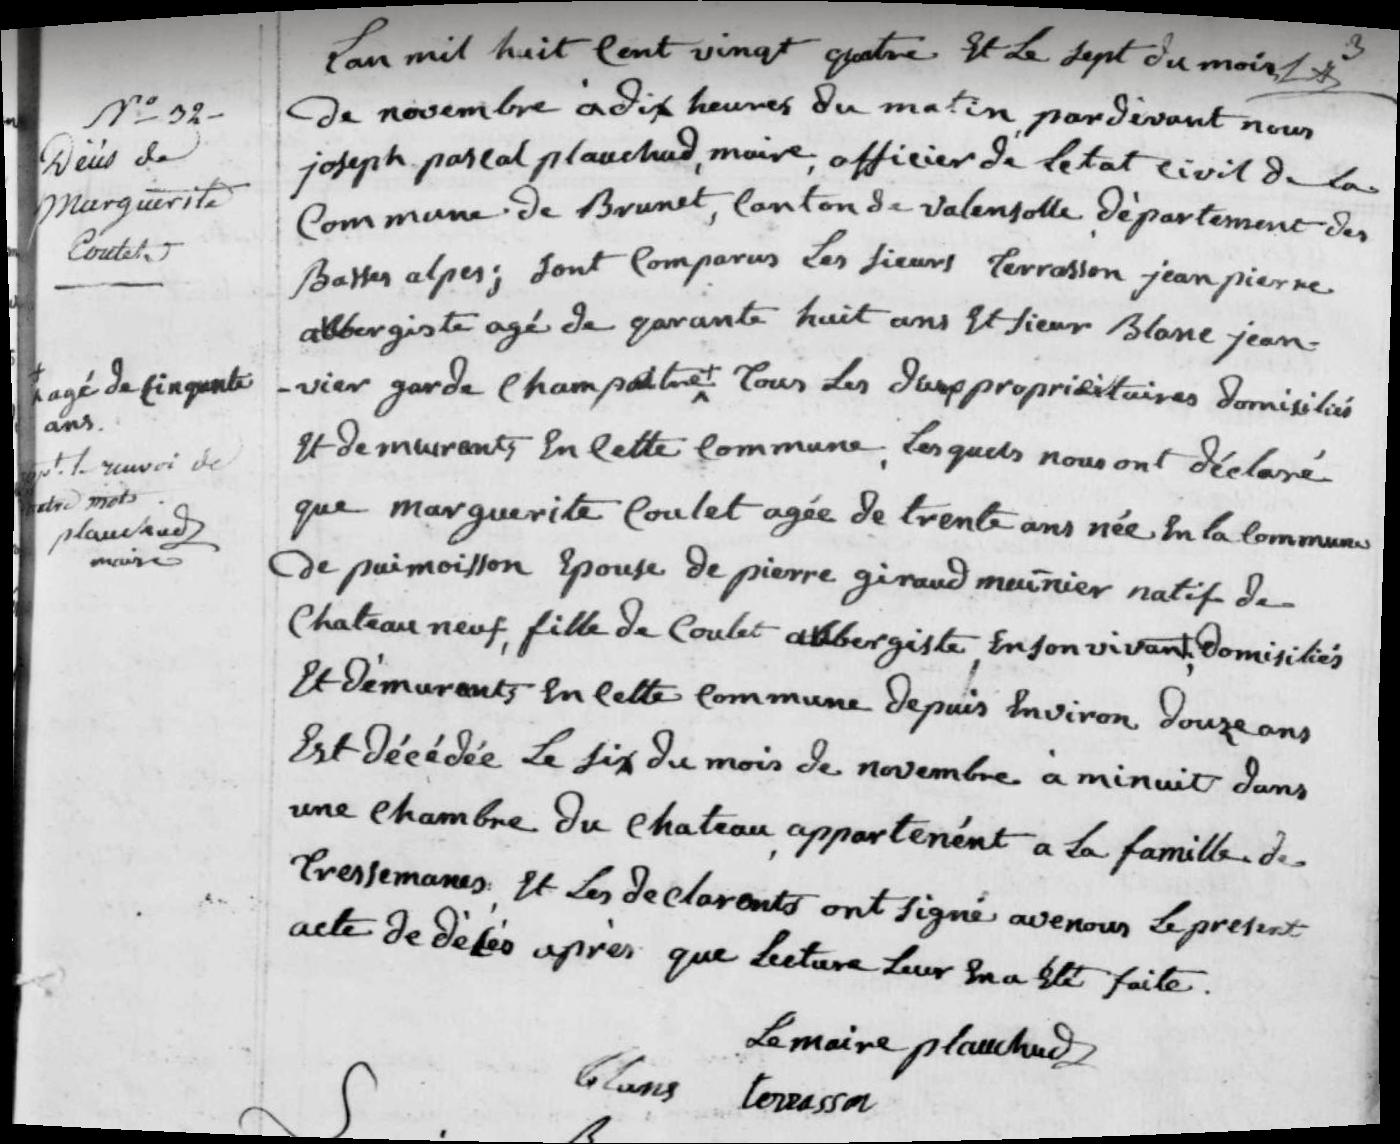 3
Lan mil huit Cent vingt quatre Et Le sept du mois
De novembre à dix heures du matin, pardèvant nous
joseph pascal plauchud, maire, officier de letat Civil de La
Commune de Brunet, Canton de valensolle département des
Basses alpes; sont Comparus Les sieurs Terrasson jean pierre
aubergiste agé de qarante huit ans Et sieur Blanc jean-
-vier garde Champaitre + Tous Les deux propriétaires domisiliés
Et demurents En Cette Commune, Lesquels nous ont déclaré
que marguerite Coulet agée de trente ans née En la Commune
De puimoisson Epouse de pierre giraud meunier natif de
Chateau neuf, fille de Coulet aubergiste, En son vivant, Domisiliés
Et démurents En Cette Commune depuis Environ douze ans
Est décédée Le six du mois de novembre à minuit dans
une Chambre du Chateau, appartenént a La famille de
Tressemanes, Et Les declarents ont signé avenous Le present
acte de décés après que Lecture Leur En a Eté faite.
Le maire plauchud
blanc terrasson
N.o 32-
Déces de
Marguerite
Coulet
+ agé de Cinquente
ans.
le renvoi de
mots
plauchud
maire